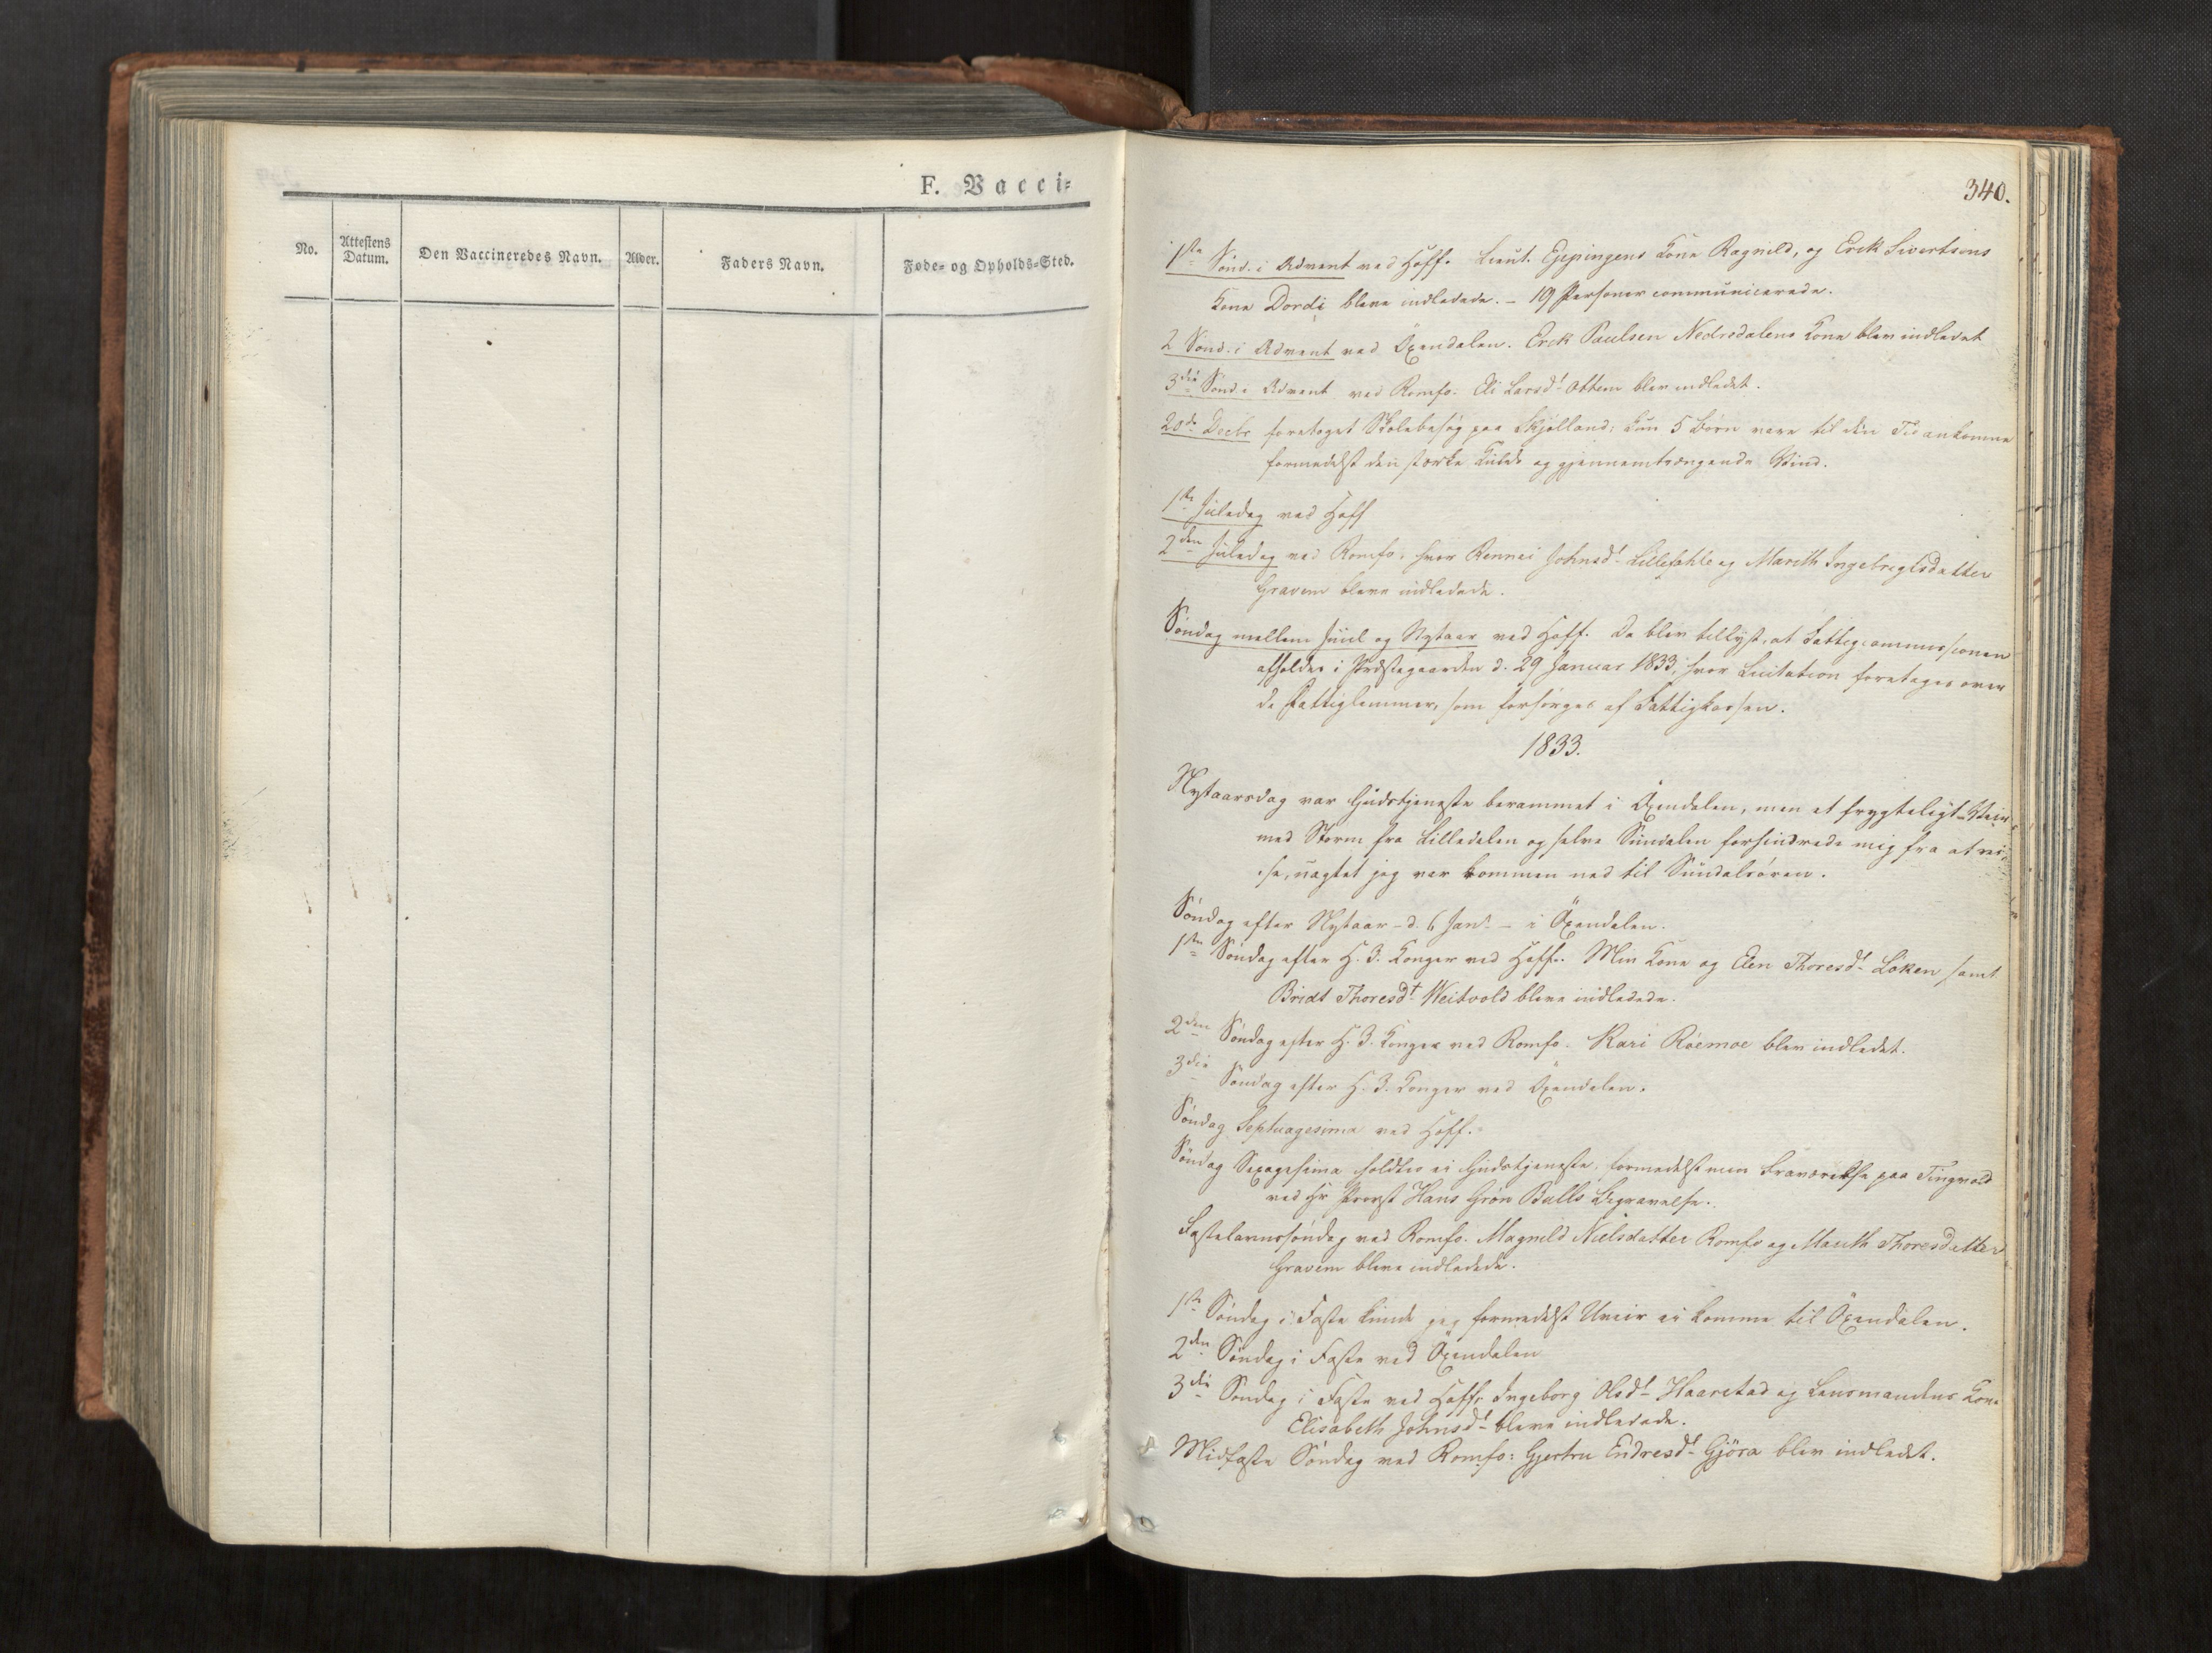 F. Vacci=
No.
Attestens
Datum.
Den Vaccineredes Navn.
Alder.
Faders Navn.
Føde- og Opholds-Sted.
340.
1ste Sønd. i Advent ved Hoff. Lieut. Kone Ragnild, og Erik Sivertsens
Kone Dordi bleve indledede. – 19 Personer communicerede.
2 Sønd. i Advent ved Öxendalen. Erik Paulsen Nedredalens Kone blev indledet
3die Sønd. i Advent ved Romfo. Eli Larsdt Ottem blev indledet.
20de Decbr foretoget Skolebesøg paa Skjølland; kun 5 Børn vare til den Tid ankomne
formedelst den stærke Kulde og gjennemtrængende Vind.
1ste Juledag ved Hoff
2den Juledag ved Romfo, hvor Rennei Johnsdt Lillefahle og Marith Ingebregtsdatter
Gravem bleve indledede.
Søndag mellem Juul og Nytaar ved Hoff. Da blev tillyst, at Fattigcommissionen
afholdes i Præstegaarden d. 29 Januar 1833, hvor Licitation foretages over
de Fattiglemmer, som forsørges af Fattigkassen.
1833.
Nytaarsdag var Gudstjeneste berammet i Öxendalen, men et frygteligt Veir
med Storm fra Lilledalen og selve Sundalen forhindrede mig fra at rei-
se, uagtet jeg var kommen ned til Sundalsören.
Søndag efter Nytaar – d. 6 Janr – i Öxendalen.
1ste Søndag efter H. 3. Konger ved Hoff. Min Kone og Elen Thoresdt Løken samt
Bridt Thoresdt Weitvold bleve indledede.
2den Søndag efter H. 3. Konger ved Romfo. Kari Röemoe blev indledet.
3die Søndag efter H. 3. Konger ved Öxendalen.
Søndag Septuagesima ved Hoff.
Søndag Sexagesima holdtes ei Gudstjeneste, formedelst min Fraværelse paa Tingvold
ved Hr Provst Hans Grøn Bulls Begravelse.
Fastelavnssøndag ved Romfo. Magnild Nielsdatter Romfo og Marith Thoresdatter
Gravem bleve indledede.
1ste Søndag i Faste kunde jeg formedelst Uveir ei komme til Öxendalen.
2den Søndag i Faste ved Öxendalen
3die Søndag i Faste ved Hoff. Ingeborg Olsdt Haarstad og Lensmandens Kone
Elisabeth Johnsdt bleve indledede.
Midfaste Søndag ved Romfo: Gjertru Endresdt Gjöra blev indledet.